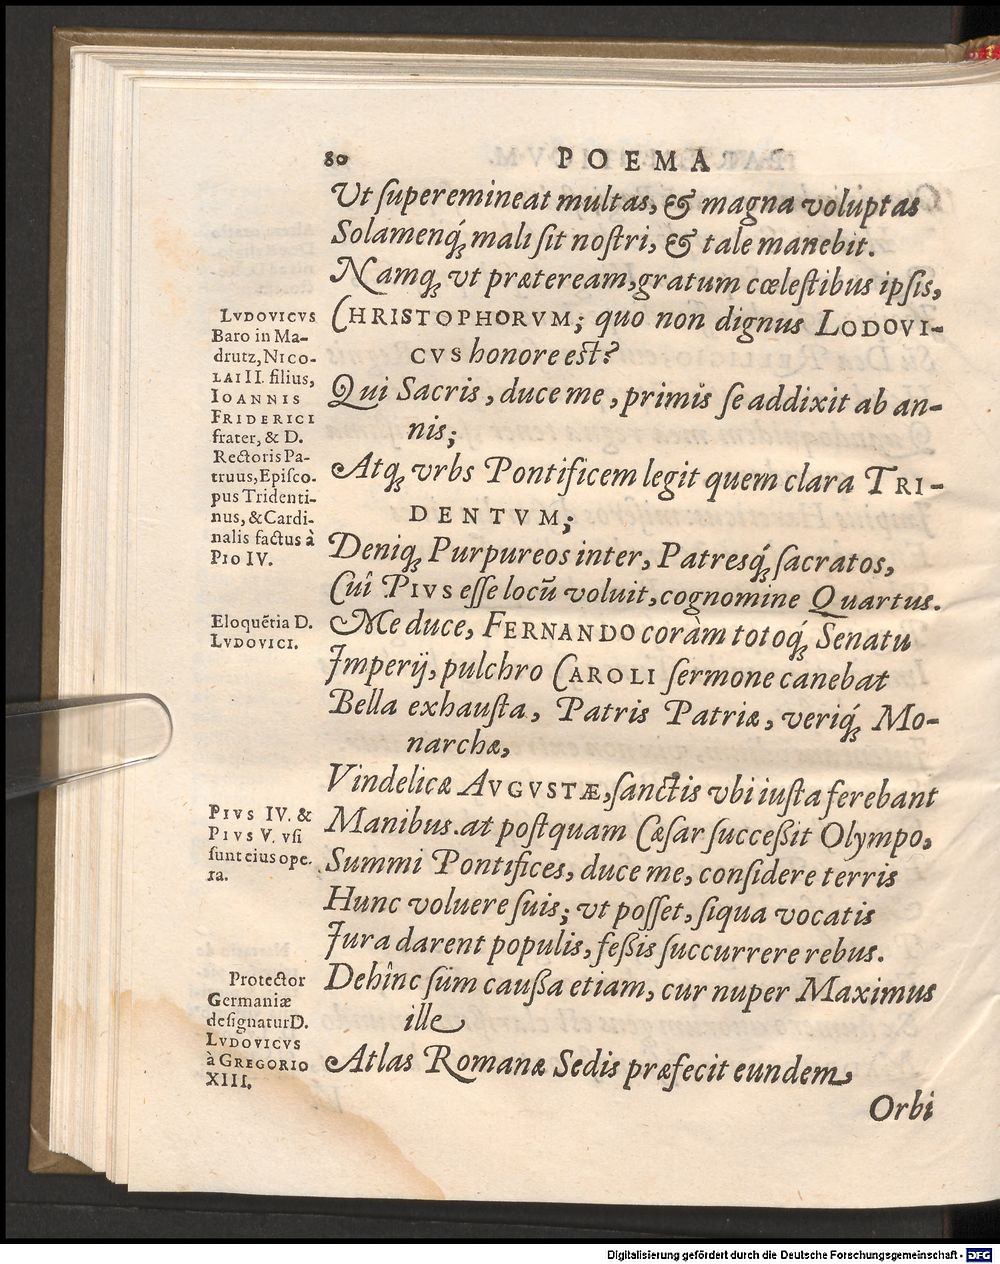 80 POEMA
Ut ſuperemineat multas, & magna voluptas
Solamenq́; mali ſit noſtri, & tale manebit.
Namq; vt præteream, gratum cœleſtibus ipſis,
CHRISTOPHORVM; quo non dignus LODOVI-
CVS honore eſt?
Qui Sacris, duce me, primis ſe addixit ab an-
nis;
Atq; vrbs Pontificem legit quem clara TRI-
DENTVM;
Deniq; Purpureos inter, Patresq́; ſacratos,
Cuî PIVS eſſe locū voluit, cognomine Quartus.
Me duce, FERNANDO coràm totoq́; Senatu
Imperij, pulchro CAROLI ſermone canebat
Bella exhauſta, Patris Patriæ, veriq́; Mo-
narchæ,
Vindelicæ AVGVSTÆ, ſanctis vbi iuſta ferebant
Manibus. at poſtquam Cæſar ſucceßit Olympo,
Summi Pontifices, duce me, conſidere terris
Hunc voluere ſuis; vt poſſet, ſiqua vocatis
Jura darent populis, feßis ſuccurrere rebus.
Dehînc ſùm cauſſa etiam, cur nuper Maximus
ille
Atlas Romanæ Sedis præfecit eundem
Orbi
LVDOVICVS
Baro in Ma-
drutz, NICO-
LAI II. filius,
IOANNIS
FRIDERICI
frater, & D.
Rectoris Pa-
truus, Epiſco-
pus Tridenti-
nus, & Cardi-
nalis factus à
PIO IV.
Eloquẽtia D.
LVDOVICI.
PIVS IV. &
PIVS V. vſi
ſunt eius ope-
ra.
Protector
Germaniæ
deſignatur D.
LVDOVICVS
à GREGORIO
XIII.
Digitalisierung gefördert durch die Deutsche Forschungsgemeinschaft - DFG